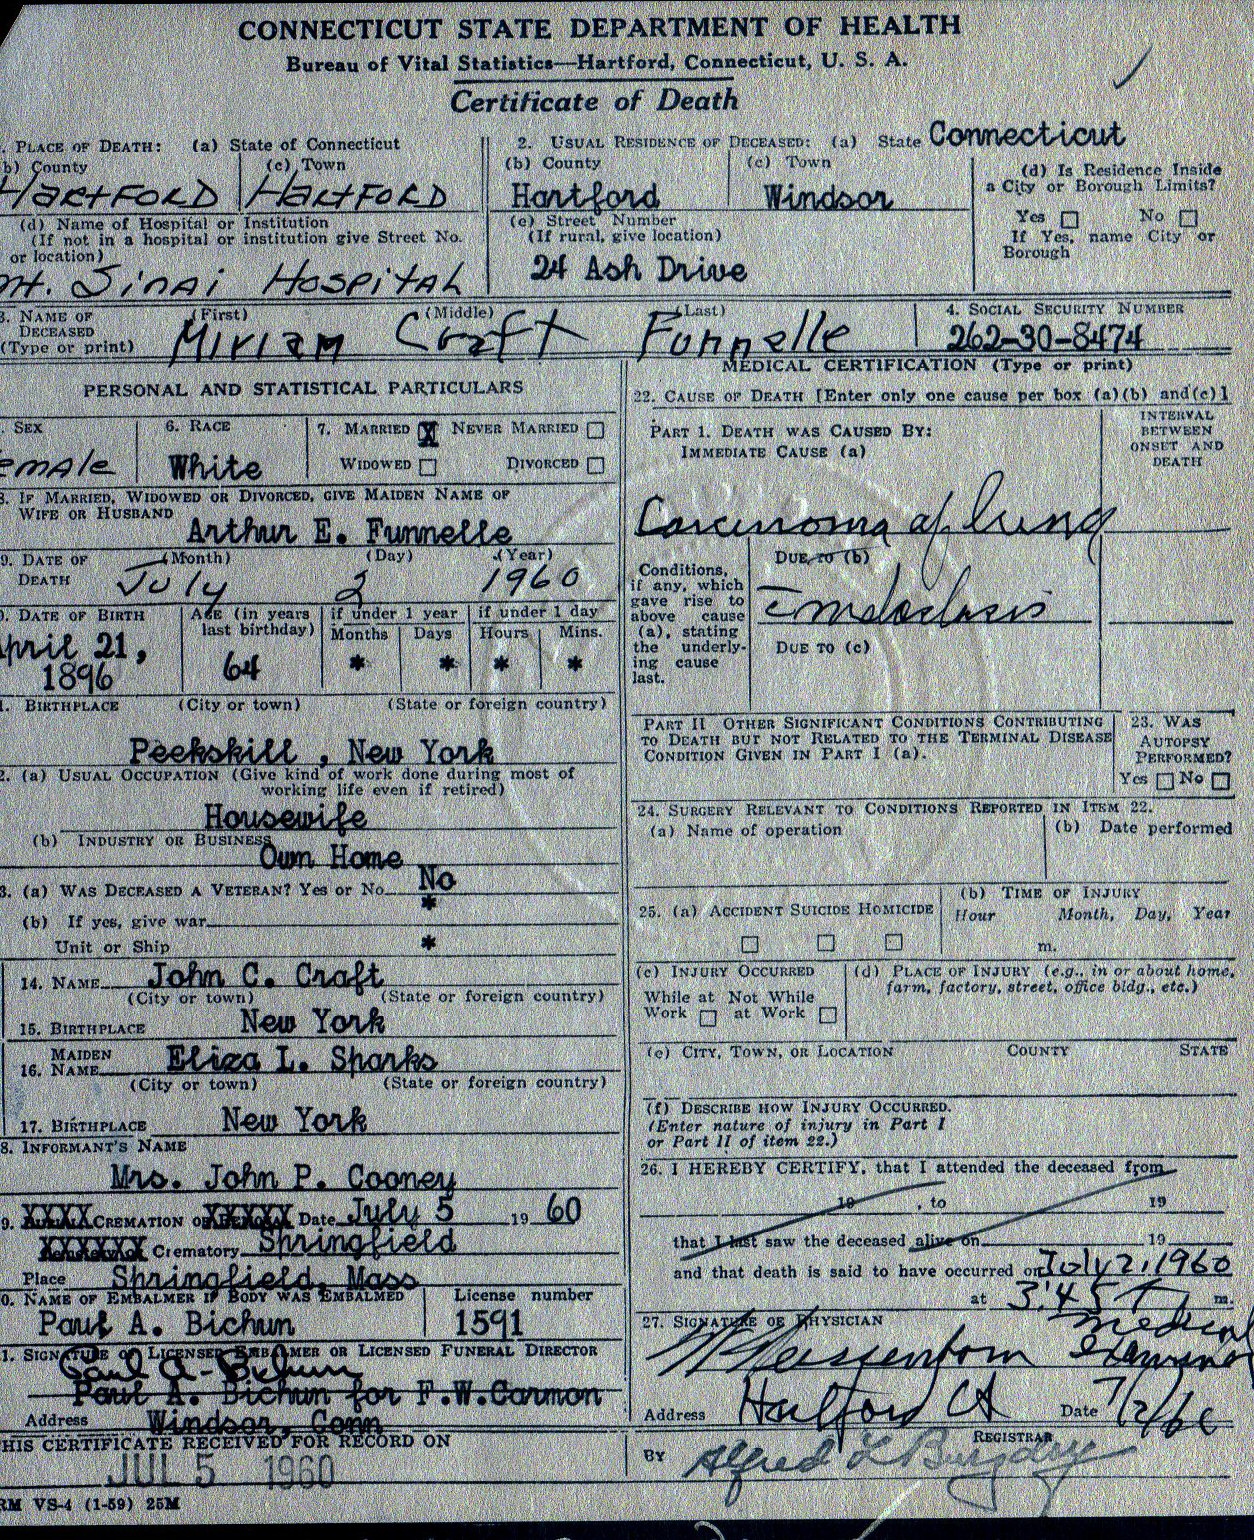 CONNECTICUT STATE DEPARTMENT OF HEALTH
Bureau of Vital Statistics—Hartford, Connecticut, U. S. A.
Certificate of Death
. PLACE OF DEATH: (a) State of Connecticut
b) County (c) Town
HARTFORD HARTFORD
(d) Name of Hospital or Institution
(If not in a hospital or institution give Street No.
or location)
Mt. Sinai Hospital
2. USUAL RESIDENCE OF DECEASED: (a) State Connecticut
(b) County (c) Town
Hartford Windsor
(e) Street Number
(If rural, give location)
24 Ash Drive
(d) Is Residence Inside
a City or Borough Limits?
Yes No
If Yes, name City or
Borough
3. NAME OF DECEASED (Type or print)
(First) (Middle) (Last)
Miriam Craft Funnelle
4. SOCIAL SECURITY NUMBER
262-30-8474
PERSONAL AND STATISTICAL PARTICULARS
. SEX 6. RACE 7. MARRIED X NEVER MARRIED
emale White WIDOWED DIVORCED
8. IF MARRIED, WIDOWED OR DIVORCED, GIVE MAIDEN NAME OF
WIFE OR HUSBAND
Arthur E. Funnelle
9. DATE OF DEATH (Month) (Day) (Year)
July 2 1960
. DATE OF BIRTH AGE (in years last birthday) if under 1 year if under 1 day
Months Days Hours Mins.
April 21,
1896 64 * * * *
. BIRTHPLACE (City or town) (State or foreign country)
Peekskill , New York
2. (a) USUAL OCCUPATION (Give kind of work done during most of
working life even if retired)
Housewife
(b) INDUSTRY OR BUSINESS
Own Home
3. (a) WAS DECEASED A VETERAN? Yes or No No
(b) If yes, give war *
Unit or Ship *
14. NAME John C. Craft
(City or town) (State or foreign country)
15. BIRTHPLACE New York
16. MAIDEN NAME Eliza L. Sparks
(City or town) (State or foreign country)
17. BIRTHPLACE New York
8. INFORMANT'S NAME
Mrs. John P. Cooney
9. XXXX CREMATION OR XXXXX Date July 5 19 60
XXXXXX Crematory Springfield
Place Springfield, Mass
0. NAME OF EMBALMER IF BODY WAS EMBALMED License number
Paul A. Bichun 1591
1. SIGNATURE OF LICENSED EMBALMER OR LICENSED FUNERAL DIRECTOR
Paul A. Bichun
Paul A. Bichun for F.W.Carmon
Address Windsor, Conn
HIS CERTIFICATE RECEIVED FOR RECORD ON
JUL 5 1960
RM VS-4 (1-59) 25M
MEDICAL CERTIFICATION (Type or print)
22. CAUSE OF DEATH [Enter only one cause per box (a)(b) and(c)]
PART 1. DEATH WAS CAUSED BY:
IMMEDIATE CAUSE (a)
INTERVAL
BETWEEN
ONSET AND
DEATH
Carcinoma of lung
Conditions,
if any, which
gave rise to
above cause
(a), stating
the underly-
ing cause
last.
DUE TO (b)
DUE TO (c)
PART II OTHER SIGNIFICANT CONDITIONS CONTRIBUTING
TO DEATH BUT NOT RELATED TO THE TERMINAL DISEASE
CONDITION GIVEN IN PART I (a).
23. WAS
AUTOPSY
PERFORMED?
Yes No
24. SURGERY RELEVANT TO CONDITIONS REPORTED IN ITEM 22.
(a) Name of operation (b) Date performed
25. (a) ACCIDENT SUICIDE HOMICIDE
(b) TIME OF INJURY
Hour Month, Day, Year
m.
(c) INJURY OCCURRED
While at Not While
Work at Work
(d) PLACE OF INJURY (e.g., in or about home,
farm, factory, street, office bldg., etc.)
(e) CITY, TOWN, OR LOCATION COUNTY STATE
(f) DESCRIBE HOW INJURY OCCURRED.
(Enter nature of injury in Part I
or Part II of item 22.)
26. I HEREBY CERTIFY, that I attended the deceased from
19 , to 19
that I last saw the deceased alive on 19
and that death is said to have occurred on July 2, 1960
at 3:45 m.
27. SIGNATURE OF PHYSICIAN
Medical
Examiner
Address Hartford Ct Date 7/2/60
REGISTRAR
BY Alfred L Burgdorf